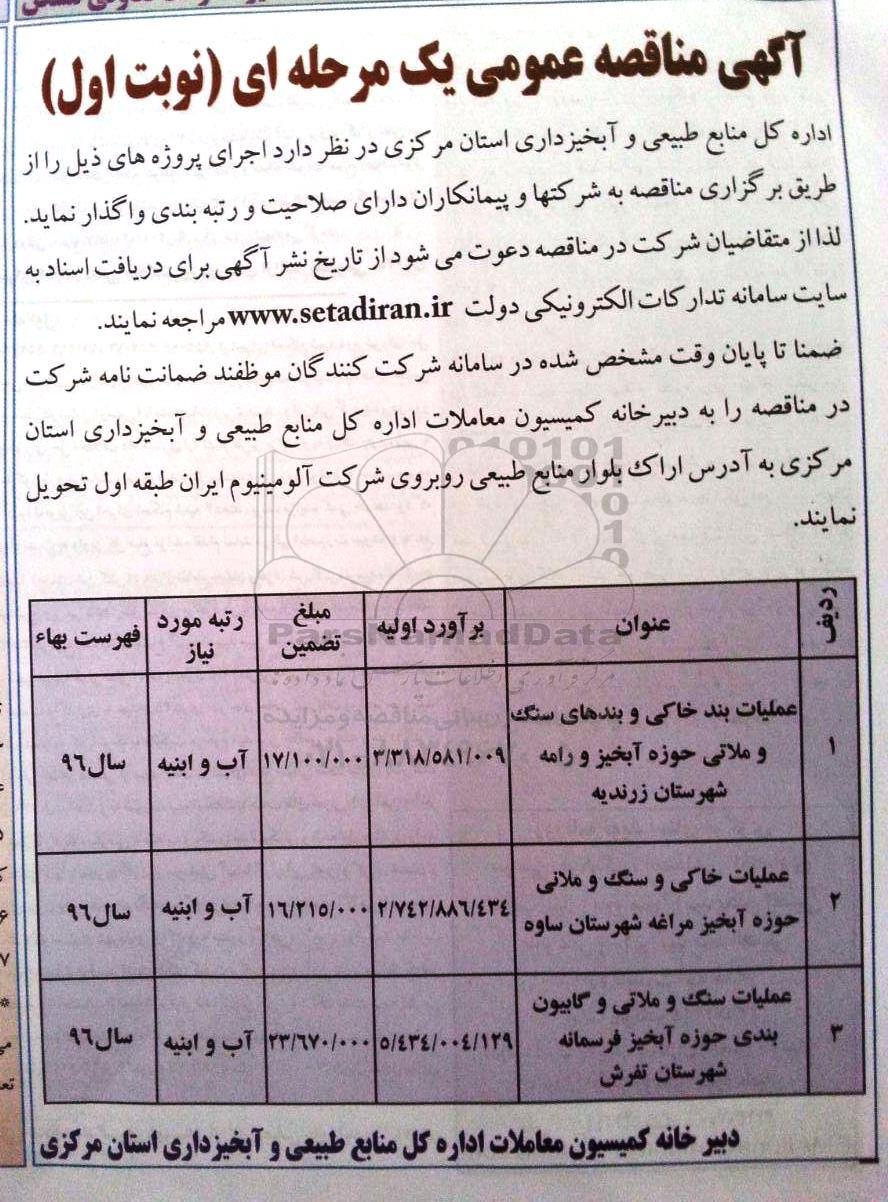 آگهی مناقصه عمومی یک مرحله ای (نوبت اول)
اداره کل منابع طبیعی و آبخیزداری استان مرکزی در نظر دارد اجرای پروژه های ذیل را از
طریق برگزاری مناقصه به شرکتها و پیمانکاران دارای صلاحیت و رتبه بندی واگذار نماید.
لذا از متقاضیان شرکت در مناقصه دعوت می شود از تاریخ نشر آگهی برای دریافت اسناد به
سایت سامانه تدارکات الکترونیکی دولت www.setadiran.ir مراجعه نمایند.
ضمنا تا پایان وقت مشخص شده در سامانه شرکت کنندگان موظفند ضمانت نامه شرکت
در مناقصه را به دبیرخانه کمیسیون معاملات اداره کل منابع طبیعی و آبخیزداری استان
مرکزی به آدرس اراک بلوار منابع طبیعی روبروی شرکت آلومینیوم ایران طبقه اول تحویل
نمایند.
ردیف عنوان برآورد اولیه مبلغ تضمین رتبه مورد نیاز فهرست بهاء
۱ عملیات بند خاکی و بندهای سنگ
و ملاتی حوزه آبخیز و رامه
شهرستان زرندیه
۳/۳۱۸/۵۸۱/۰۰۹ ۱۷/۱۰۰/۰۰۰ آب و ابنیه سال۹۶
۲ عملیات خاکی و سنگ و ملاتی
حوزه آبخیز مراغه شهرستان ساوه
۲/۷٤۲/۸۸۶/٤۳٤ ۱۶/۲۱۵/۰۰۰ آب و ابنیه سال۹۶
۳ عملیات سنگ و ملاتی و گابیون
بندی حوزه آبخیز فرسمانه
شهرستان تفرش
۵/٤۳٤/۰۰٤/۱۲۹ ۲۳/۶۷۰/۰۰۰ آب و ابنیه سال۹۶
دبیر خانه کمیسیون معاملات اداره کل منابع طبیعی و آبخیزداری استان مرکزی
ParsNamadData